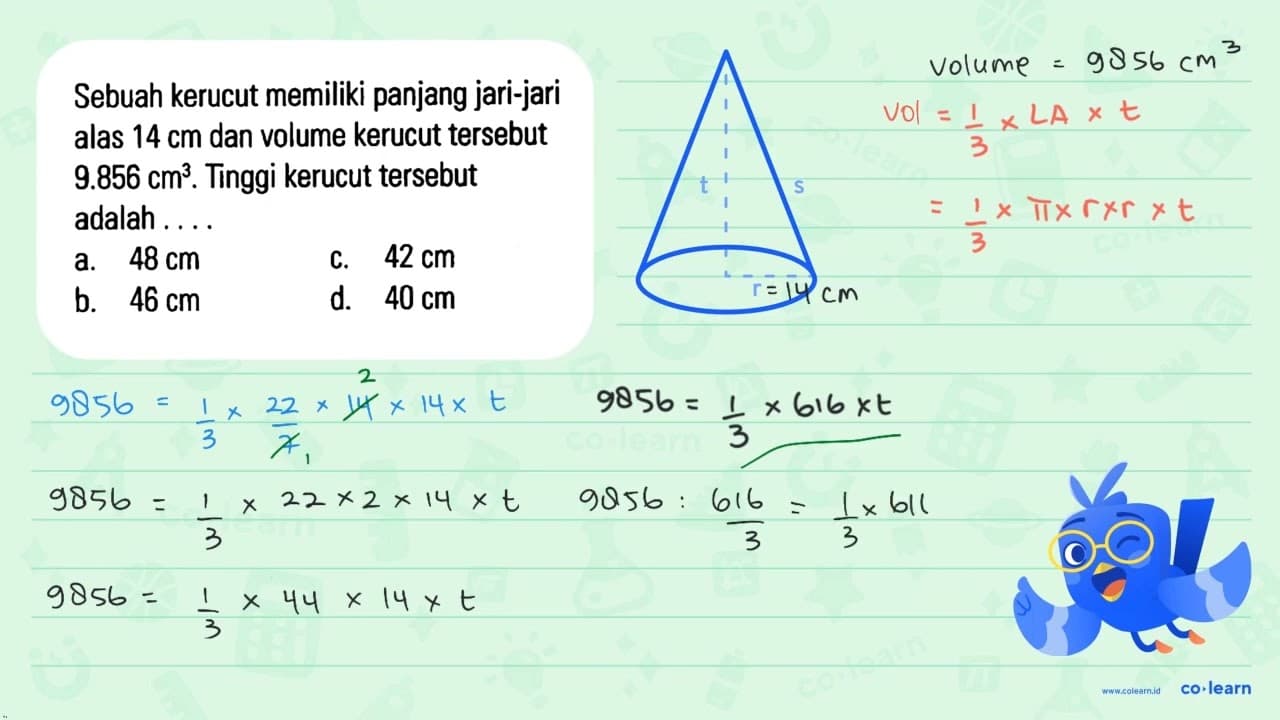 Sebuah kerucut memiliki panjang jari-jari
alas 14 cm dan volume kerucut tersebut
9.856 cm³. Tinggi kerucut tersebut
adalah . . . .
a. 48 cm c. 42 cm
b. 46 cm d. 40 cm
t
s
r = 14 cm
Volume = 9856 cm³
Vol = 1/3 × LA × t
= 1/3 × π × r × r × t
2
9856 = 1/3 × 22/7 × 14 × 14 × t
1
9856 = 1/3 × 22 × 2 × 14 × t
9856 = 1/3 × 44 × 14 × t
9856 = 1/3 × 616 × t
9856 : 616/3 = 1/3 × 61
www.colearn.id co·learn
co·learn
co·learn
co·learn
co·learn